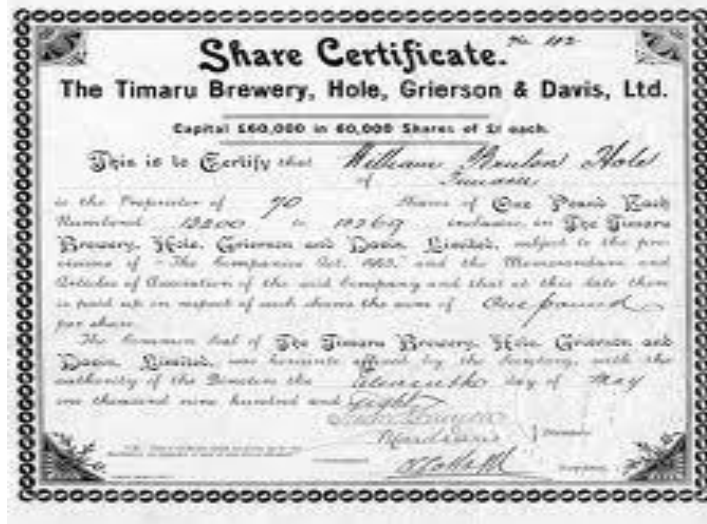 Share Certificate.
The Timaru Brewery, Hole, Grierson & Davis, Ltd.
Capital £60,000 in 60,000 Shares of £1 each.
This is to Certify that William Hole
of Timaru
is the Proprietor of 70 Shares of One Pound Each
Numbered to inclusive, in The Timaru
Brewery, Hole, Grierson and Davis, Limited, subject to the pro-
visions of "The Companies Act, " and the Memorandum and
Articles of Association of the said Company and that at this date there
is paid up in respect of such shares the sum of One pound
per share.
The Common Seal of The Timaru Brewery, Hole, Grierson and
Davis, Limited, was hereunto affixed by the Secretary, with the
authority of the Directors the day of May
one thousand nine hundred and eight
Directors